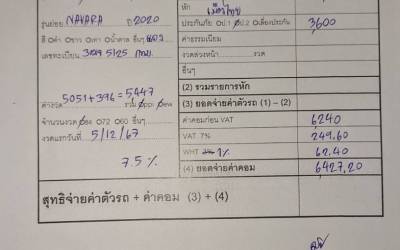 หัก เมืองไทย
รุ่นย่อย NAVARA ปี 2020
ประกันภัย ป1 ป2.2 เบี้ยประกัน 3,600
สี ดำ ขาว เทา น้ำตาล อื่นๆ
ค่าธรรมเนียม
เลขทะเบียน 5125 กทม.
งวดล่วงหน้า งวด
อื่นๆ
(2) รวมรายการหัก
ค่างวด 5051+396 = 5447
(3) ยอดจ่ายค่าตัวรถ (1) - (2)
จำนวนงวด 72 60 อื่นๆ
ค่าคอมก่อน VAT 6240
งวดแรกวันที่ 5/12/67
VAT 7% 249.60
75%
WHT 1% 62.40
(4) ยอดจ่ายค่าคอม 6427.20
สุทธิจ่ายค่าตัวรถ + ค่าคอม (3) + (4)